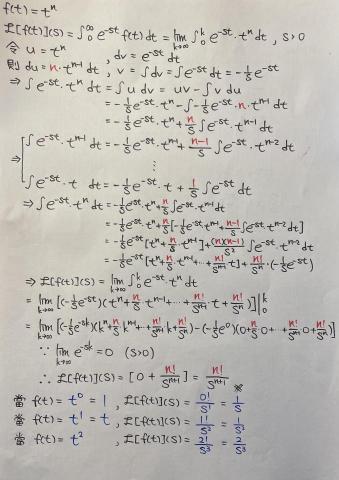 f(t) = tⁿ
£[f(t)](s) = ∫₀^∞ e^(-st) f(t) dt = lim_(k→∞) ∫₀^k e^(-st)·tⁿ dt , s>0
令 u = tⁿ , dv = e^(-st) dt
則 du = n·t^(n-1) dt , v = ∫dv = ∫e^(-st) dt = -1/s e^(-st)
⇒ ∫e^(-st)·tⁿ dt = ∫u dv = uv - ∫v du
= -1/s e^(-st)·tⁿ - ∫-1/s e^(-st)·n·t^(n-1) dt
= -1/s e^(-st)·tⁿ + n/s ∫e^(-st)·t^(n-1) dt
⇒ ∫e^(-st)·t^(n-1) dt = -1/s e^(-st)·t^(n-1) + (n-1)/s ∫e^(-st)·t^(n-2) dt
⋮
∫e^(-st)·t dt = -1/s e^(-st)·t + 1/s ∫e^(-st) dt
⇒ ∫e^(-st)·tⁿ dt = -1/s e^(-st)·tⁿ + n/s ∫e^(-st)·t^(n-1) dt
= -1/s e^(-st)·tⁿ + n/s [-1/s e^(-st)·t^(n-1) + (n-1)/s ∫e^(-st)·t^(n-2) dt]
= -1/s e^(-st) [tⁿ + n/s t^(n-1)] + (n)(n-1)/s² ∫e^(-st)·t^(n-2) dt
= -1/s e^(-st) [tⁿ + n/s·t^(n-1) + ⋯ + n!/s^(n-1) t] + n!/sⁿ·(-1/s e^(-st))
⇒ £[f(t)](s) = lim_(k→∞) ∫₀^k e^(-st)·tⁿ dt
= lim_(k→∞) [(-1/s e^(-st))(tⁿ + n/s·t^(n-1) + ⋯ + n!/s^(n-1) t + n!/sⁿ)] |₀^k
= lim_(k→∞) [(-1/s e^(-sk))(kⁿ + n/s k^(n-1) + ⋯ + n!/s^(n-1) k + n!/sⁿ) - (-1/s e⁰)(0 + n/s·0 + ⋯ + n!/s^(n-1)·0 + n!/sⁿ)]
∵ lim_(k→∞) e^(-sk) = 0 (s>0)
∴ £[f(t)](s) = [0 + n!/s^(n+1)] = n!/s^(n+1) ※
當 f(t) = t⁰ = 1 , £[f(t)](s) = 0!/s¹ = 1/s
當 f(t) = t¹ = t , £[f(t)](s) = 1!/s² = 1/s²
當 f(t) = t² , £[f(t)](s) = 2!/s³ = 2/s³